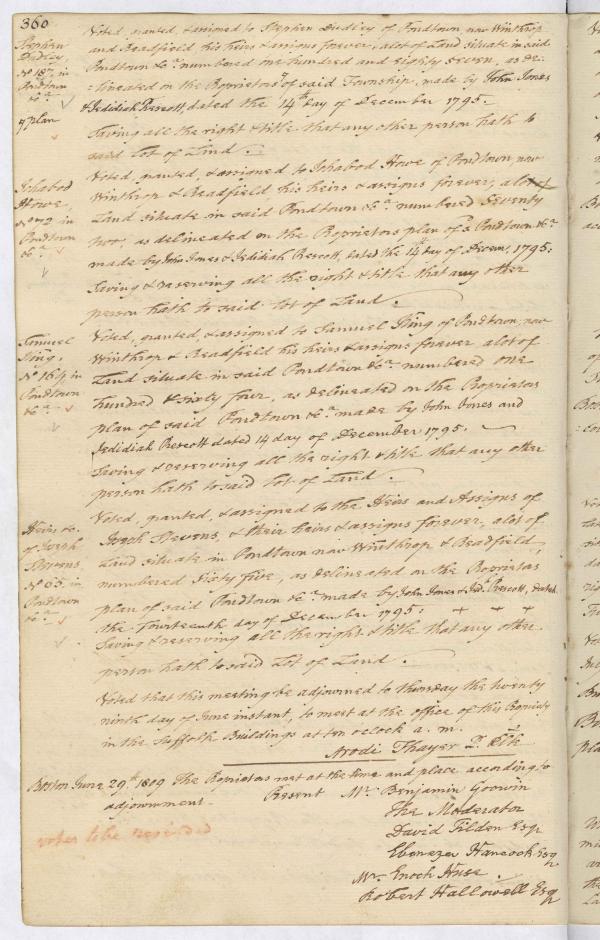 360
Stephen
Dudley,
No 187. in
Pondtown
&ca.
& plan
Voted, granted, & assigned to Stephen Dudley of Pondtown, now Winthrop
and Readfield, his heirs & assigns forever, a lot of Land situate in said
Pondtown &ca. numbered one hundred and eighty seven, as de-
-lineated on the Proprietors of said Township, made by John Jones
& Jedidiah Prescott, dated the 14th day of December 1795.
Saving all the right & title that any other person hath to
said lot of Land.
Ichabod
Howe,
in
Pondtown
&ca.
Voted, granted, & assigned to Ichabod Howe of Pondtown now
Winthrop & Readfield, his heirs & assigns forever, a lot of
Land situate in said Pondtown &ca. numbered Seventy
two, as delineated on the Proprietors plan of sd. Pondtown &ca.
made by John Jones & Jedidiah Prescott, dated the 14th day of Decemr. 1795.
Saving & reserving all the right & title that any other
person hath to said lot of Land.
Samuel
King,
No 164 in
Pondtown
&ca.
Voted, granted, & assigned to Samuel King of Pondtown, now
Winthrop & Readfield his heirs & assigns forever a lot of
Land situate in said Pondtown &ca. numbered one
hundred & sixty four, as delineated on the Proprietors
plan of said Pondtown &ca. made by John Jones and
Jedidiah Prescott dated 14 day of December 1795.
Saving & reserving all the right & title that any other
person hath to said lot of Land.
Heirs &c.
of Joseph
Stevens,
No 65. in
Pondtown
&ca.
Voted, granted, & assigned to the Heirs and Assigns of
Joseph Stevens, & their heirs & assigns forever, a lot of
Land situate in Pondtown now Winthrop & Readfield,
numbered Sixty five, as delineated on the Proprietors
plan of said Pondtown &ca. made by John Jones & Jedh. Prescott, dated
the fourteenth day of December 1795: + + +
Saving & reserving all the right & title that any other
person hath to said Lot of Land.
Voted that this meeting be adjourned to thursday the twenty
ninth day of June instant, to meet at the office of this Propriety
in the Suffolk Buildings at ten oclock a. m.
Arodi Thayer P. Clk
Boston June 29th 1809 The Proprietors met at the time and place according to
adjournment. Present Mr. Benjamin Goodwin
The Moderator
David Tilden Esqr
Ebenezer Hancock Esqr
Mr. Enoch Huse.
Robert Hallowell Esqr
votes to be recorded